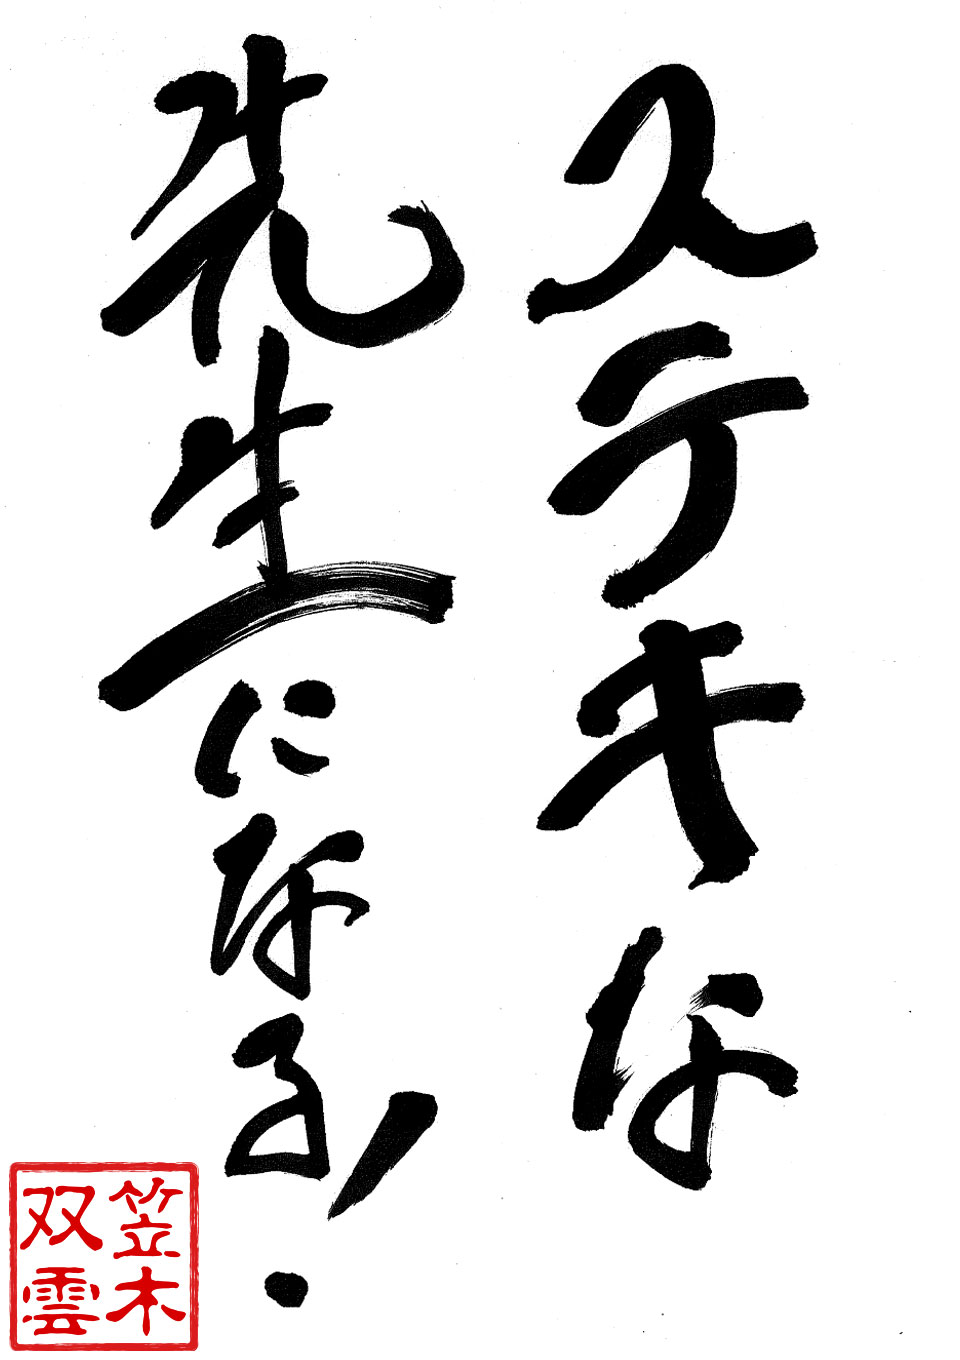 ステキな
先生になる！
笠木
双雲